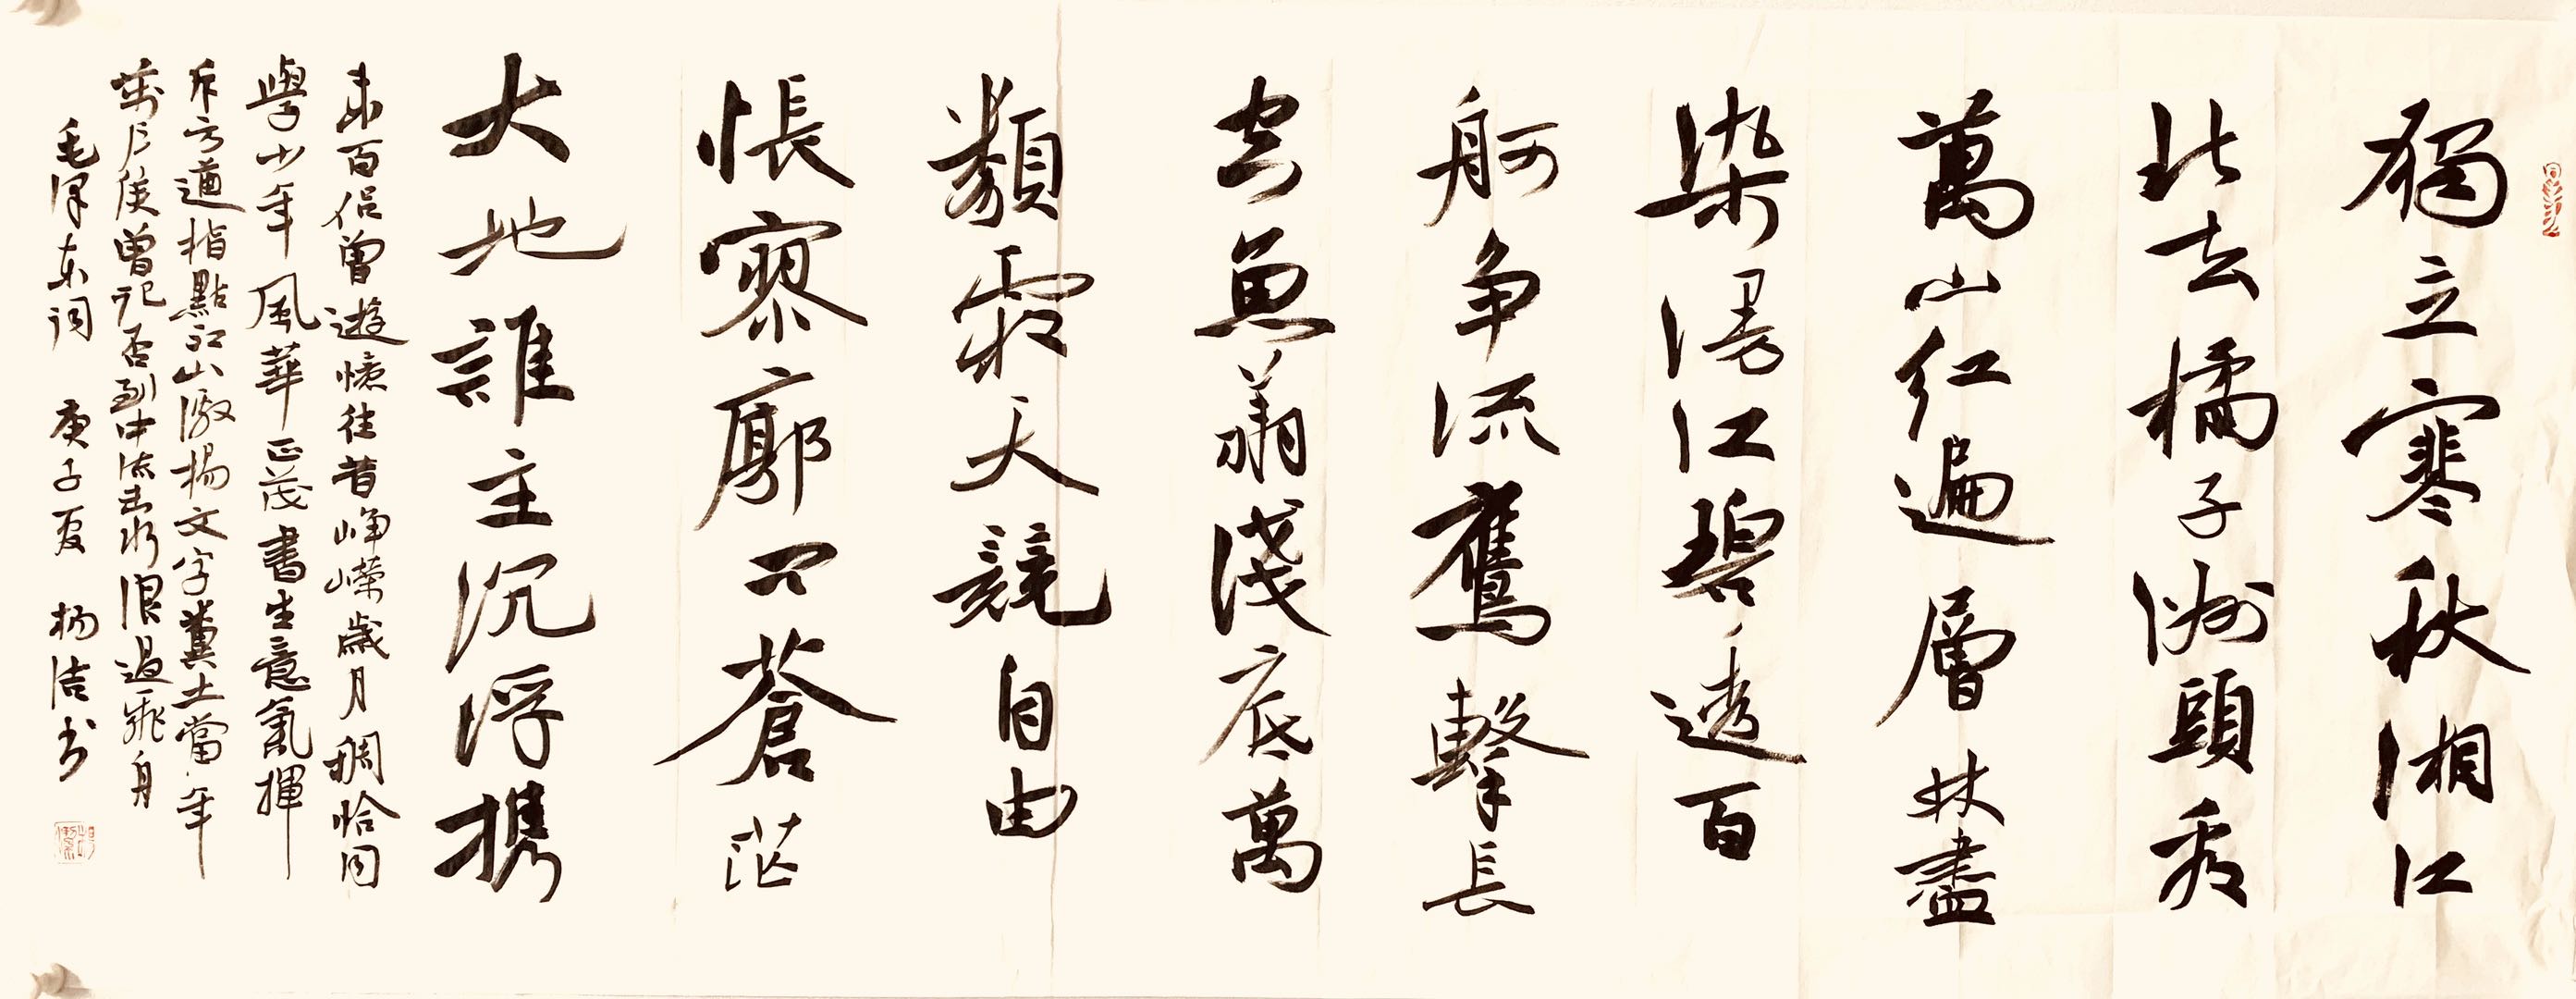 獨立寒秋湘江
北去橘子洲頭看
萬山红遍層林盡
染漫江碧透百
舸争流鷹擊長
空魚翔淺底萬
類霜天競自由
悵寥廓问蒼茫
大地誰主沉浮携
来百侣曾遊憶往昔峥嶸歲月稠恰同
學少年風華正茂書生意氣揮
斥方遒指點江山激揚文字糞土當年
萬户侯曾记否到中流击水浪遏飛舟
毛泽东词 庚子夏 杨洁书